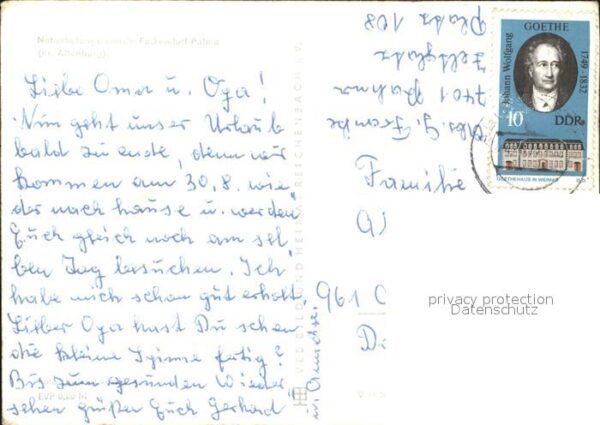 (Kr. Altenburg)
Liebe Oma u. Opa!
Nun geht unser Urlaub
bald zu ende, denn wir
kommen am 30.8. wie
der nach hause u. werden
Euch gleich noch am sel
ben Tag besuchen. Ich
habe mich schon gut erholt.
Lieber Opa hast Du schon
die kleine fertig?
Bis zum gesunden Wieder
sehen grüßen Euch Gerhard
EVP 0,20 M
VEB BILD UND HEIMAT REICHENBACH i. V.
Abs. G.
7401 Pahna
Zeltplatz
Platz 108
Familie
961
Johann Wolfgang
GOETHE
1749-1832
10
DDR
GOETHEHAUS IN WEIMAR
privacy protection
Datenschutz